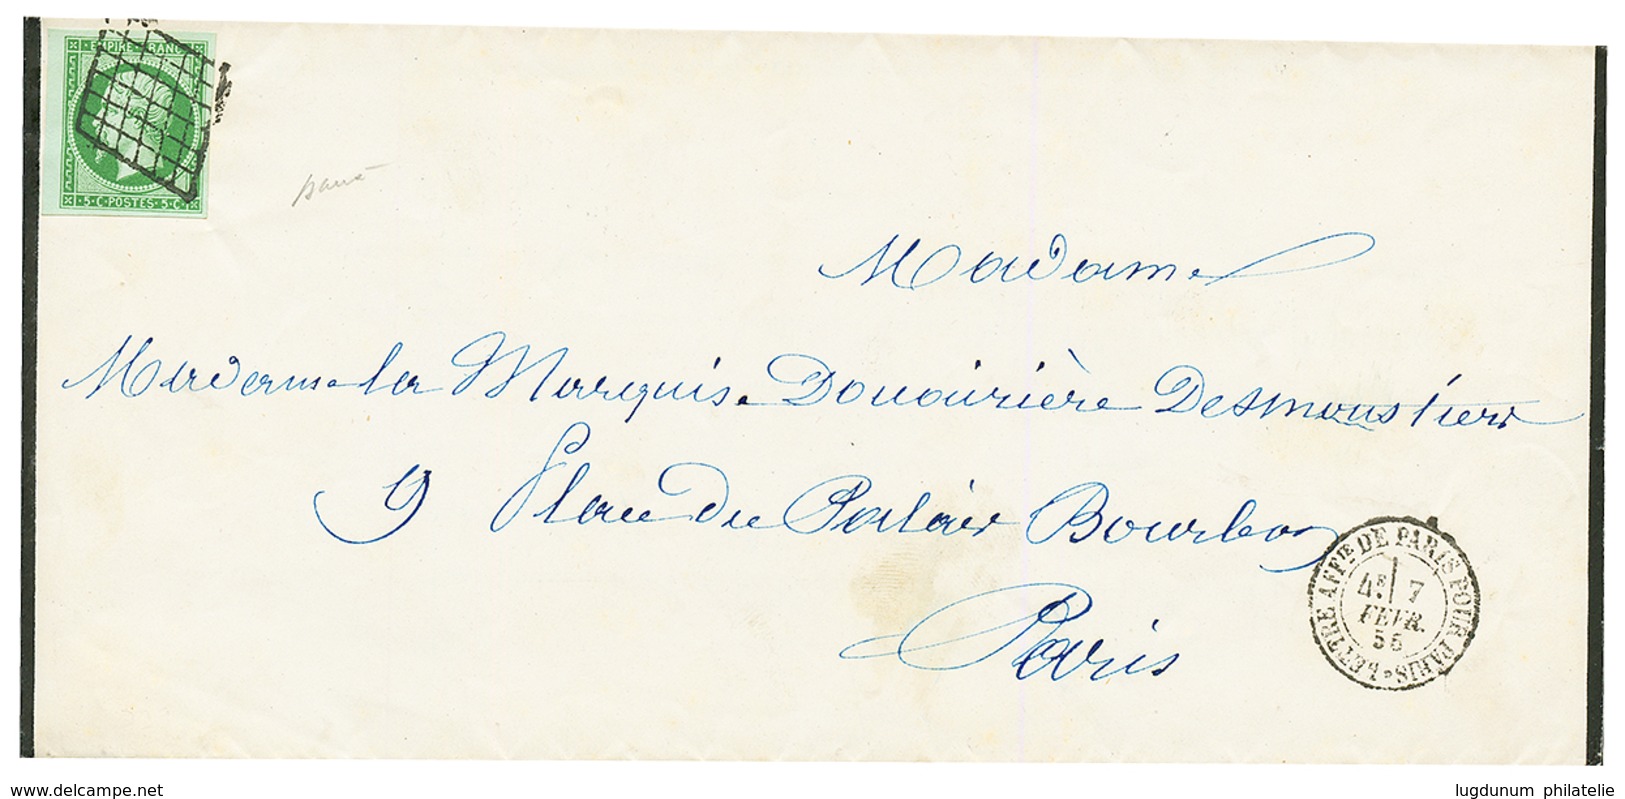 EMPIRE FRANC
5·C·POSTES·5·C
Madame
Madame la Marquise Douairière Desmoustiers
9 Place du Palais Bourbon
Paris
LETTRE AFFIE DE PARIS POUR PARIS
4E 7
FEVR.
56
www.delcampe.net
lugdunum philatelie